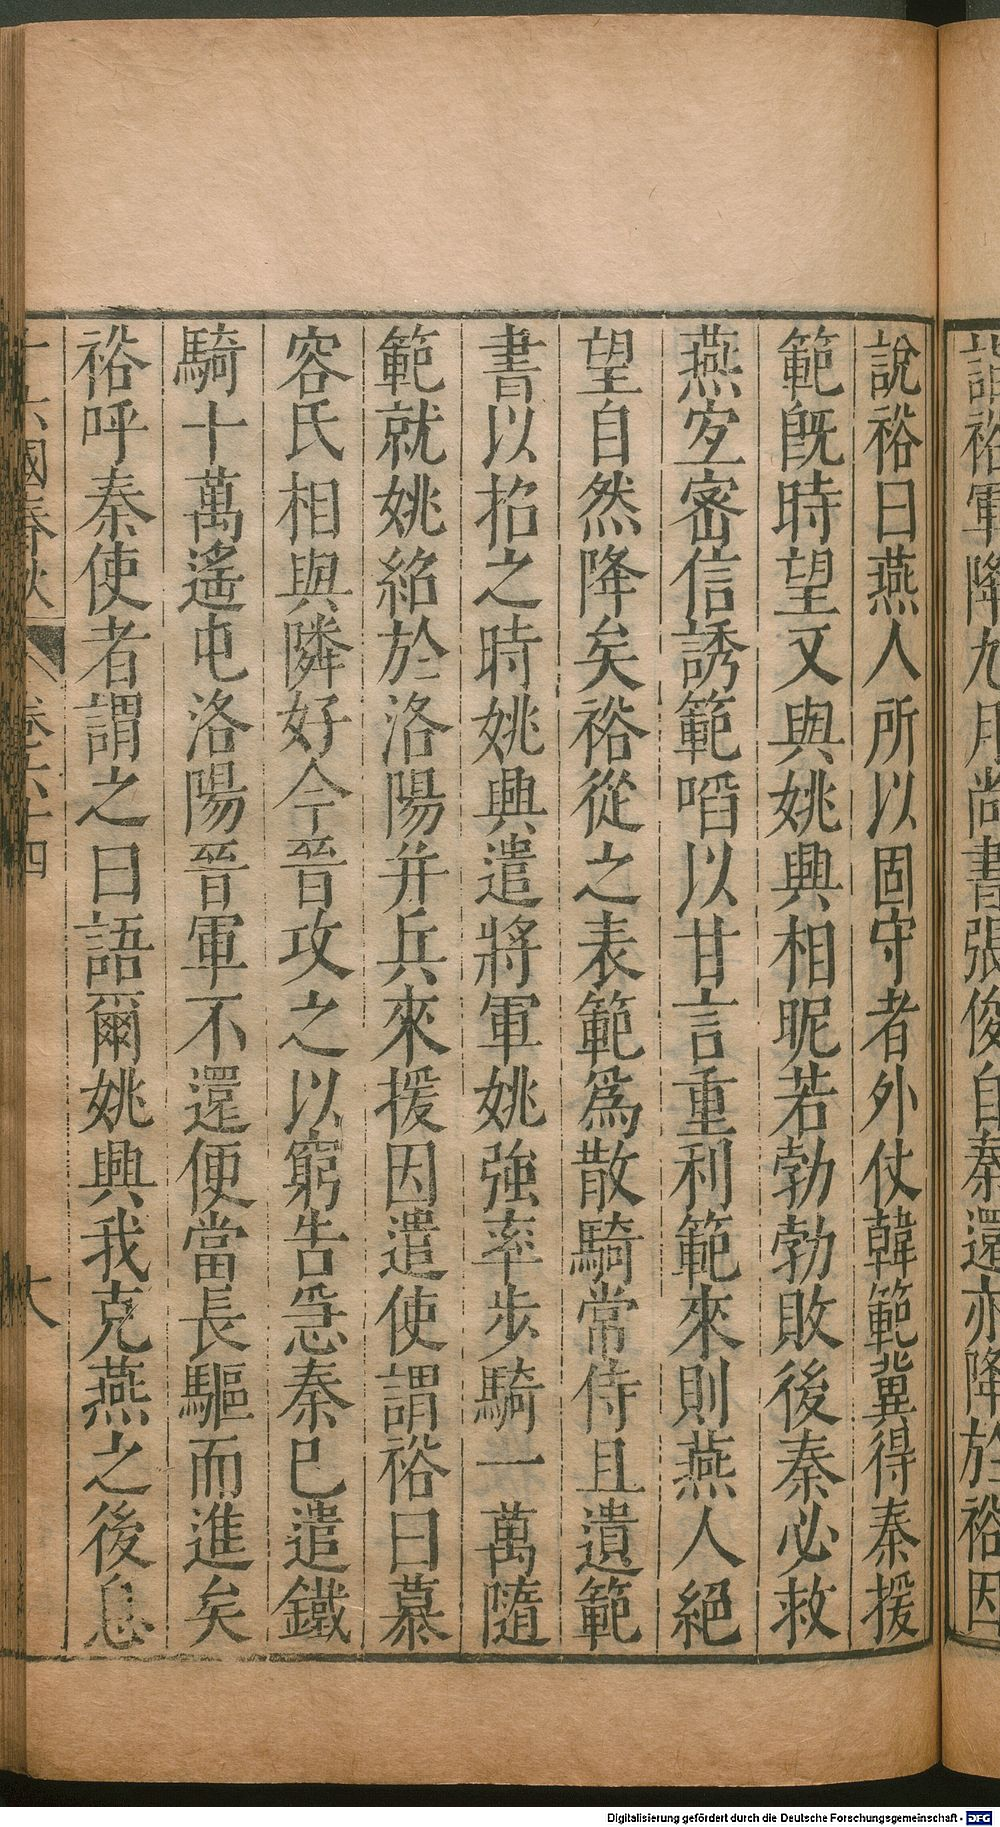 詣裕軍降九月尚書張俊自秦還亦降於裕因
說裕曰燕人所以固守者外仗韓範冀得秦援
範旣時望又與姚興相昵若勃勃敗後秦必救
燕宜密信誘範啗以甘言重利範來則燕人絕
望自然降矣裕從之表範爲散騎常侍且遺範
書以招之時姚興遣將軍姚強率步騎一萬隨
範就姚紹於洛陽并兵來援因遣使謂裕曰慕
容氏相與隣好今晉攻之以窮告急秦已遣鐵
騎十萬遙屯洛陽晉軍不還便當長驅而進矣
裕呼秦使者謂之曰語爾姚興我克燕之後息
十六國春秋 卷六十四 大
Digitalisierung gefördert durch die Deutsche Forschungsgemeinschaft - DFG